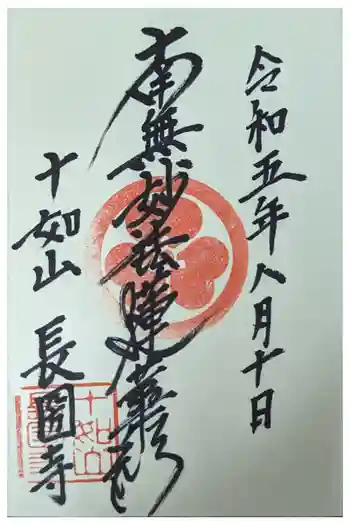 令和五年八月十日
南無妙法蓮華経
十如山 長圓寺
十如山